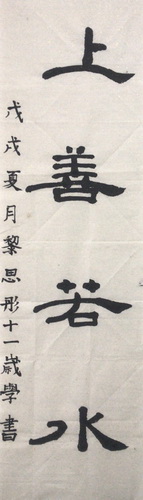 上善若水
戊戌夏月黎思彤十一歲學書